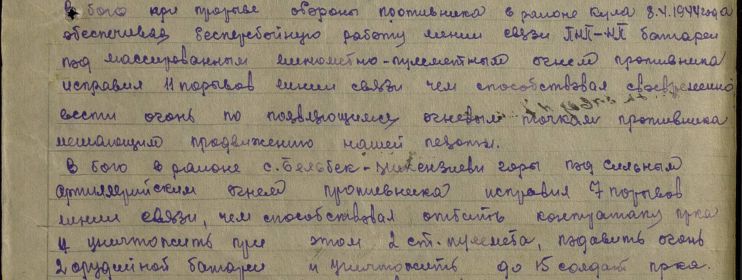 В бою при прорыве обороны противника в районе Кула 8.4.1944 года
обеспечивая бесперебойную работу линии связи ПНП-НП батареи
под массированным минометно-пулеметным огнем противника
исправил 11 порывов линии связи чем способствовал своевременно
вести огонь по появляющимся огневым точкам противника
мешающим продвижению нашей пехоты.
В бою в районе с. Бельбек - Мекензиевы горы под сильным
артиллерийским огнем противника исправил 7 порывов
линии связи, чем способствовал отбить контратаку пр-ка
и уничтожить при этом 2 ст. пулемета, подавить огонь
2 орудийной батареи и уничтожить до 15 солдат пр-ка.